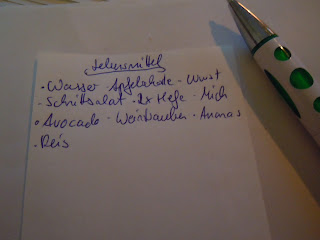 Lebensmittel
• Wasser • Apfelschorle • Wurst
• Schnittsalat • 2x Hefe • Milch
• Avocado • Weintrauben • Ananas
• Reis